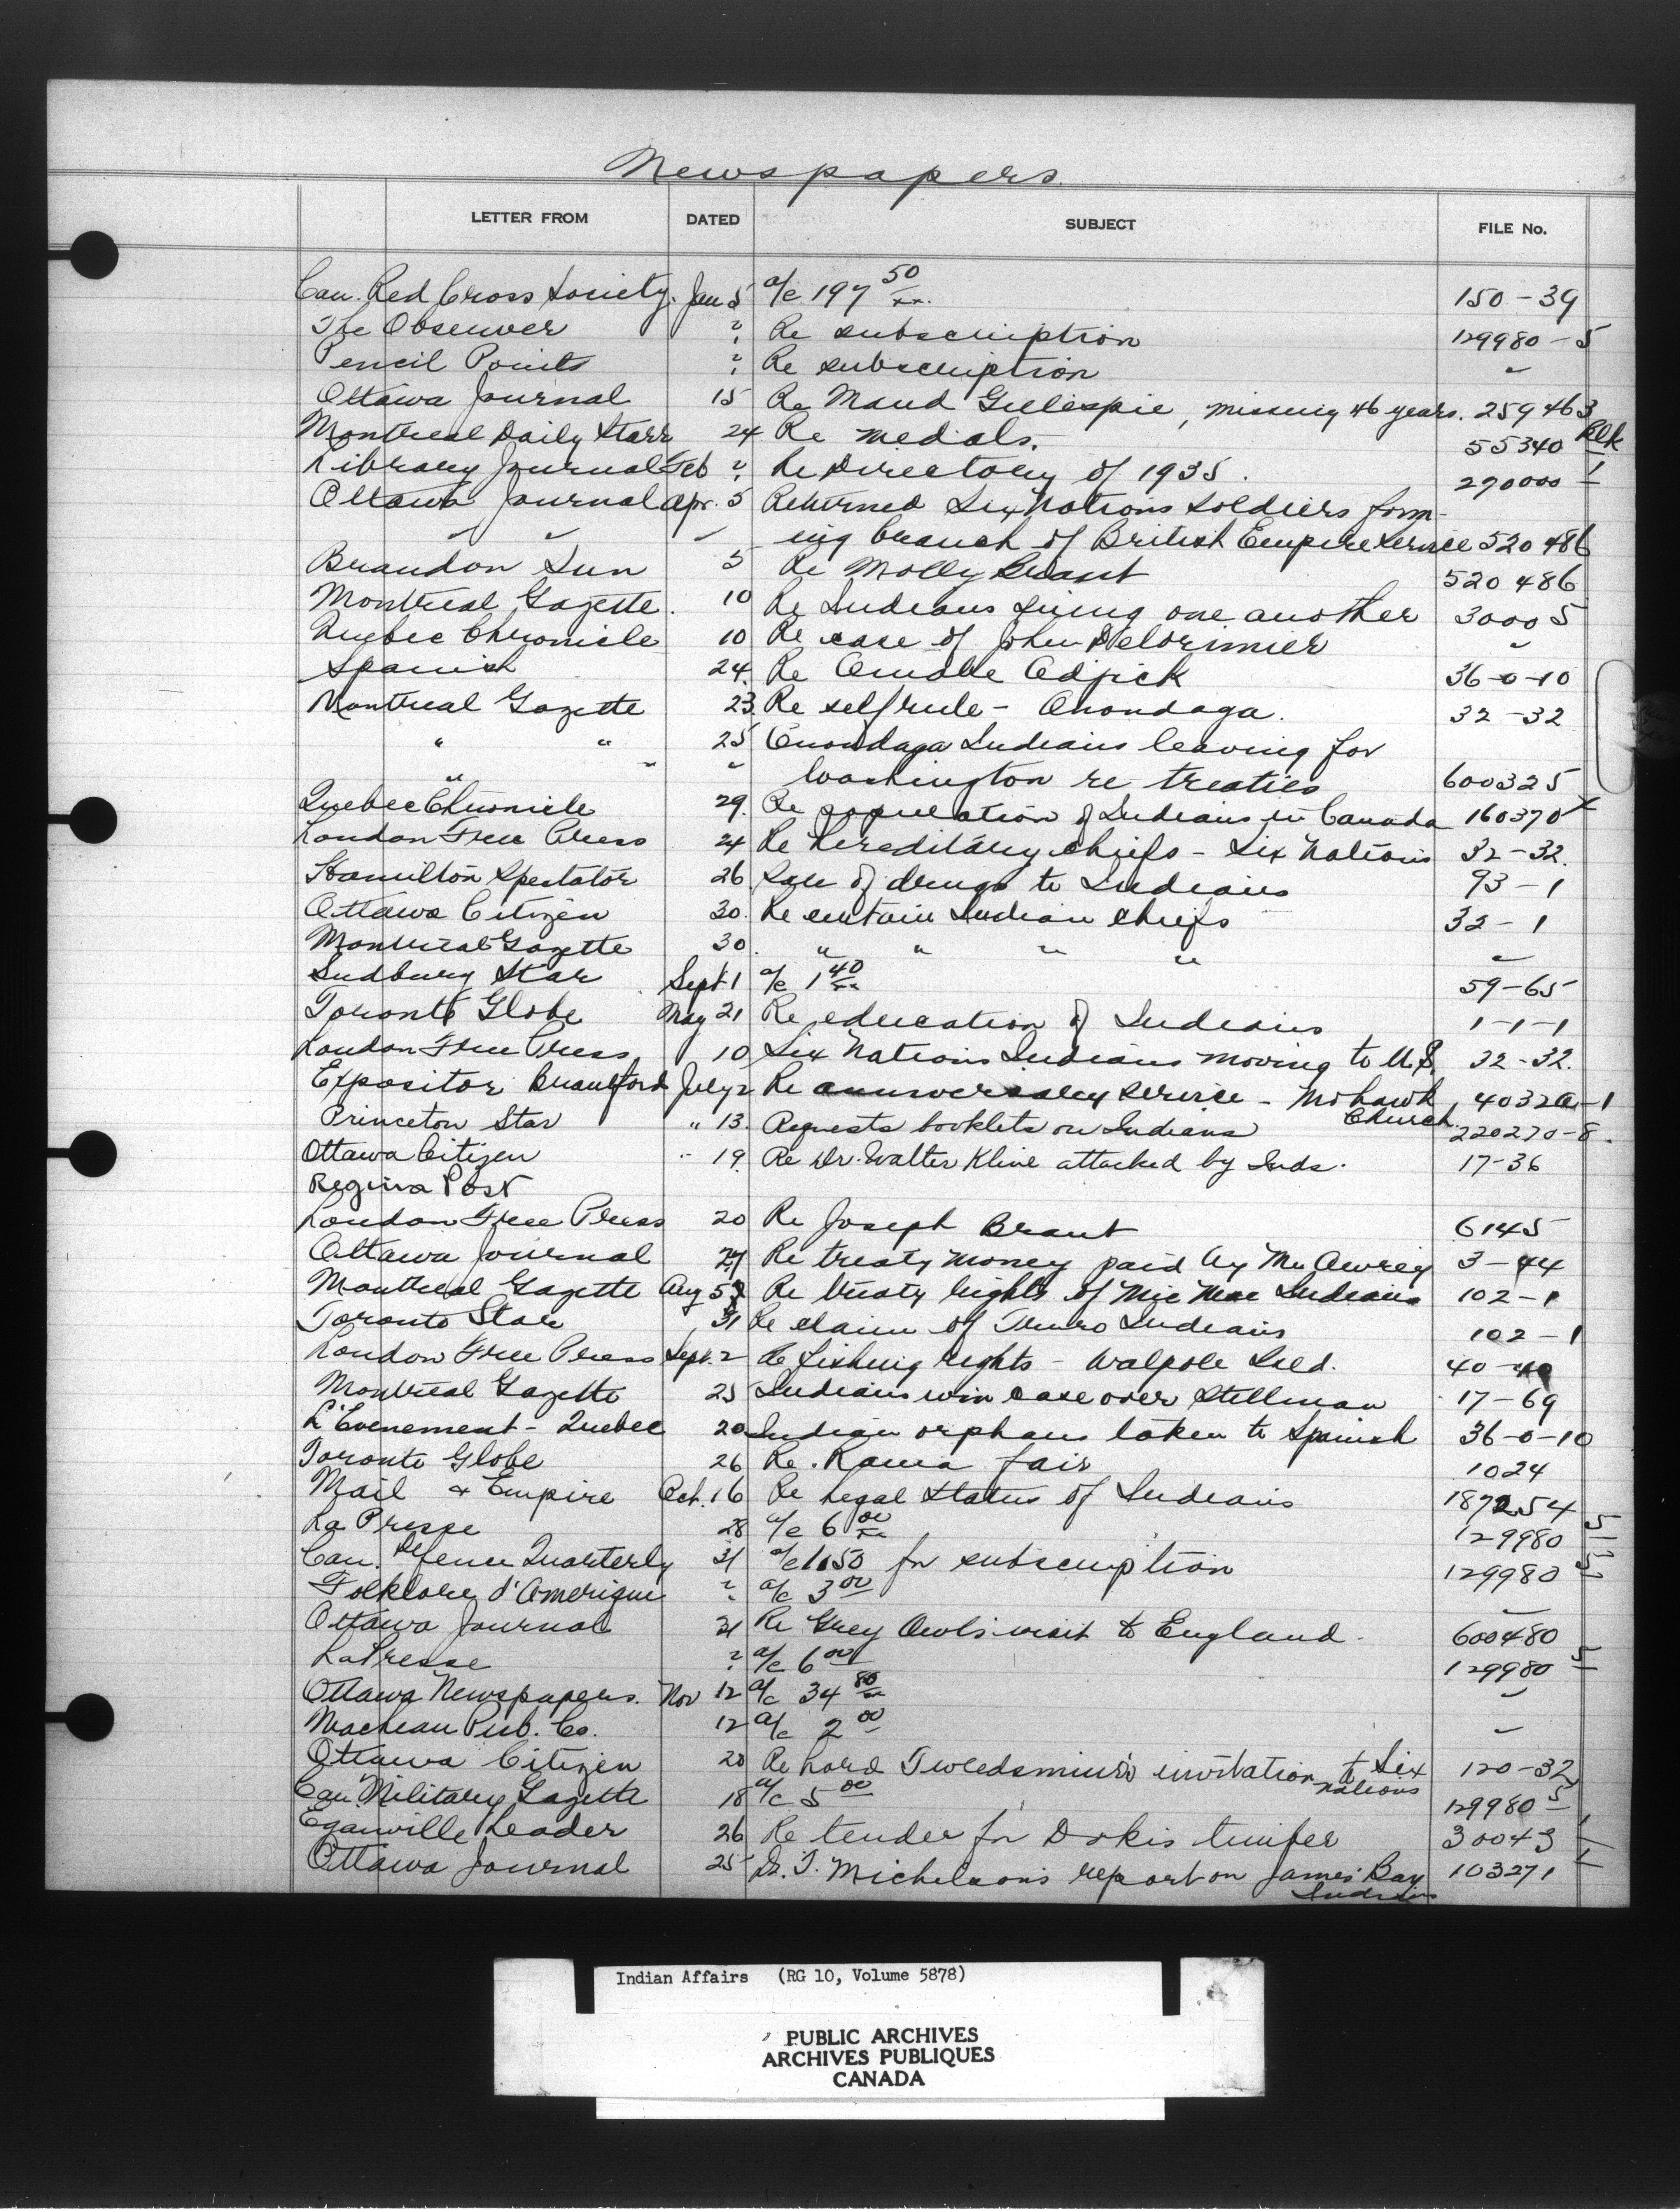 Newspapers.
LETTER FROM DATED SUBJECT FILE No.
Can. Red Cross Society. Jan 5 a/c 197 50/xx. 150-39
The Observer ? Re subscription 129980-5
Pencil Points ? Re subscription "
Ottawa Journal 15 Re Maud Gillespie, missing 46 years. 259463
Montreal Daily Starr 24 Re medals. 55340 Blk
Library Journal Feb ? Re Directory of 1935. 270000-1
Ottawa Journal Apr. 5 Returned Six Nations Soldiers form-
" " " ing branch of British Empire Service 520486
Brandon Sun 5 Re Molly Brant 520486
Montreal Gazette. 10 Re Indians suing one another 30005
Quebec Chronicle 10 Re case of John Delorimier "
Spanish 24. Re Amable Odjick 36-0-10
Montreal Gazette 23. Re self rule - Onondaga. 32-32
" " 25 Onondaga Indians leaving for
" " " Washington re treaties 600325
Quebec Chronicle 29. Re population of Indians in Canada 160370
London Free Press 24 Re hereditary chiefs - Six Nations 32-32.
Hamilton Spectator 26 Sale of drugs to Indians 93-1
Ottawa Citizen 30. Re certain Indian chiefs 32-1
Montreal Gazette 30. " " " " "
Sudbury Star Sept 1 a/c 1 40/xx 59-65
Toronto Globe May 21 Re education of Indians 1-1-1
London Free Press 10 Six Nations Indians moving to U.S. 32-32.
Expositor Brantford July 2 Re anniversary service - Mohawk 4032a-1
Church
Princeton Star " 13. Requests booklets on Indians 220270-8.
Ottawa Citizen " 19. Re Dr. Walter Kline attacked by Inds. 17-36
Regina Post
London Free Press 20 Re Joseph Brant 6145
Ottawa Journal 27 Re treaty money paid by Mr Awrey 3-44
Montreal Gazette Aug 5 Re treaty rights of Mic Mac Indians 102-1
Toronto Star 31 Re claim of Truro Indians 102-1
London Free Press Sept. 2 Re fishing rights - Walpole Isld. 40-
Montreal Gazette 25 Indians win case over Stellman 17-69
L'Evenement - Quebec 20 Indian orphans taken to Spanish 36-0-10
Toronto Globe 26 Re. Rama fair 1024
Mail & Empire Oct. 16 Re Legal Status of Indians 187254
La Presse 28 a/c 6 00/xx 129980 5
Can. Defence Quarterly 31 a/c 1.50 for subscription 129980 5
Folklore d'Amerique ? a/c 3 00 "
Ottawa Journal 31 Re Grey Owl's visit to England. 600480
La Presse ? a/c 6 00 129980 5
Ottawa Newspapers. Nov 12 a/c 34 80/xx "
MacLean Pub. Co. 12 a/c 2 00 "
Ottawa Citizen 20 Re Lord Tweedsmuir's invitation to Six 120-32
Nations
Can. Military Gazette 18 a/c 5 00 129980 5
Eganville Leader 26 Re tender for Dokis timber 30043
Ottawa Journal 25 Dr. T. Michelson's report on James Bay 103271
Indians
Indian Affairs (RG 10, Volume 5878)
PUBLIC ARCHIVES
ARCHIVES PUBLIQUES
CANADA